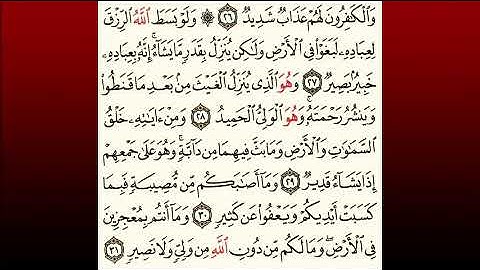 وَالْكَٰفِرُونَ لَهُمْ عَذَابٌ شَدِيدٌ ٢٦ ۞ وَلَوْ بَسَطَ اللَّهُ الرِّزْقَ
لِعِبَادِهِۦ لَبَغَوْا۟ فِى الْأَرْضِ وَلَٰكِن يُنَزِّلُ بِقَدَرٍ مَّا يَشَآءُ ۚ إِنَّهُۥ بِعِبَادِهِۦ
خَبِيرٌۢ بَصِيرٌ ٢٧ وَهُوَ الَّذِى يُنَزِّلُ الْغَيْثَ مِنۢ بَعْدِ مَا قَنَطُوا۟
وَيَنشُرُ رَحْمَتَهُۥ ۚ وَهُوَ الْوَلِىُّ الْحَمِيدُ ٢٨ وَمِنْ ءَايَٰتِهِۦ خَلْقُ
السَّمَٰوَٰتِ وَالْأَرْضِ وَمَا بَثَّ فِيهِمَا مِن دَآبَّةٍ ۚ وَهُوَ عَلَىٰ جَمْعِهِمْ
إِذَا يَشَآءُ قَدِيرٌ ٢٩ وَمَآ أَصَٰبَكُم مِّن مُّصِيبَةٍ فَبِمَا
كَسَبَتْ أَيْدِيكُمْ وَيَعْفُوا۟ عَن كَثِيرٍ ٣٠ وَمَآ أَنتُم بِمُعْجِزِينَ
فِى الْأَرْضِ ۖ وَمَا لَكُم مِّن دُونِ اللَّهِ مِن وَلِىٍّ وَلَا نَصِيرٍ ٣١